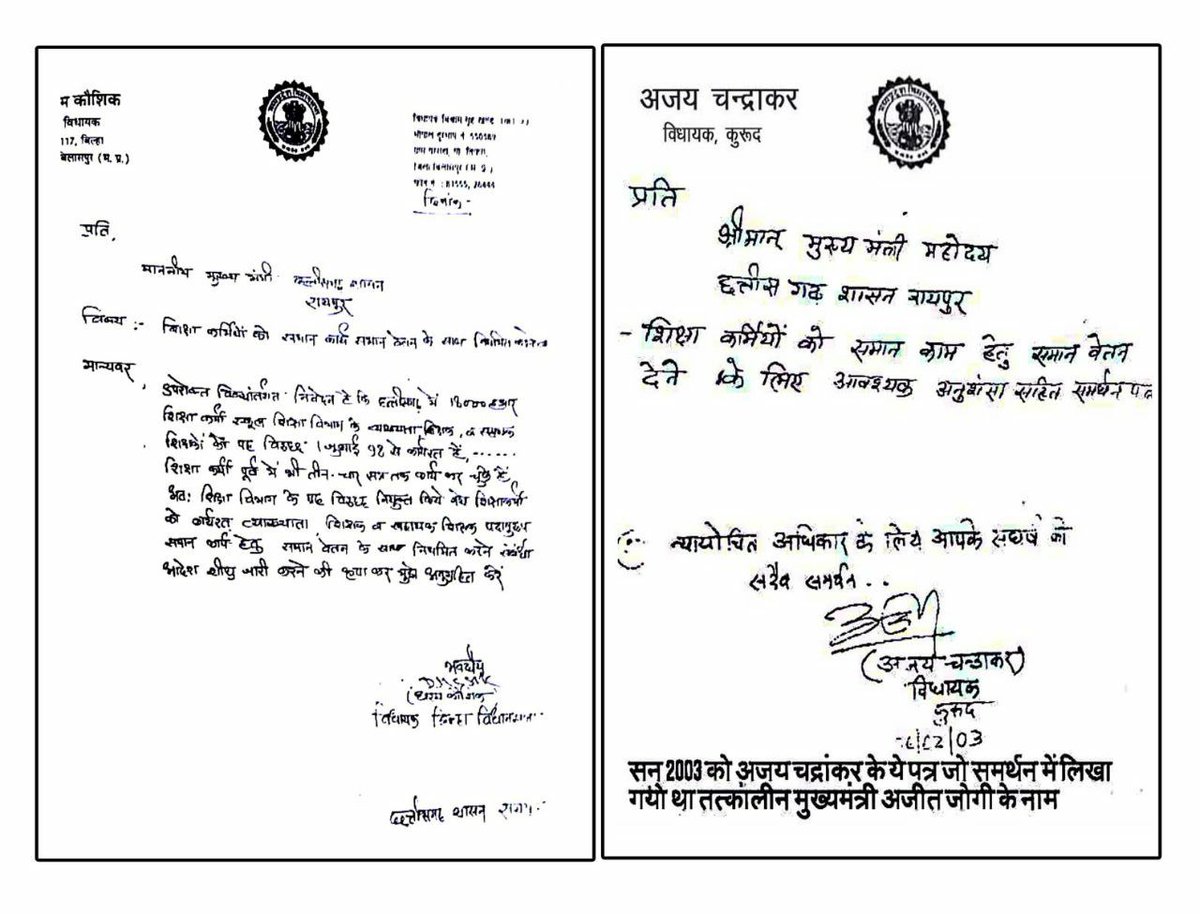 म कौशिक
विधायक
117, बिल्हा
बेलासपुर (म. प्र.)
दिनांक -
प्रति,
माननीय मुख्य मंत्री छत्तीसगढ़ शासन
रायपुर
विषय :- शिक्षा कर्मियों को समान कार्य समान वेतन के साथ
मान्यवर
उपरोक्त विषयांतर्गत निवेदन है कि छत्तीसगढ़ में
शिक्षा कर्मी स्कूल शिक्षा विभाग के व्याख्याता शिक्षक, व सहायक
शिक्षकों के पद विरुद्ध 1 जुलाई 98 से कार्यरत हैं, ......
शिक्षा कर्मी पूर्व में भी तीन-चार सत्र तक कार्य कर चुके हैं,
अतः शिक्षा विभाग के पद विरुद्ध नियुक्त किये गये शिक्षाकर्मी
को कार्यरत व्याख्याता, शिक्षक व सहायक शिक्षक पदानुरूप
समान कार्य हेतु समान वेतन के साथ नियमित करने संबंधी
आदेश शीघ्र जारी करने की कृपा कर मुझे अनुग्रहित करें
भवदीय
कौशिक
विधायक बिल्हा विधानसभा
छत्तीसगढ़ शासन
अजय चन्द्राकर
विधायक, कुरूद
प्रति
श्रीमान् मुख्य मंत्री महोदय
छत्तीस गढ़ शासन रायपुर
- शिक्षा कर्मियों को समान काम हेतु समान वेतन
देने के लिए आवश्यक अनुशंसा सहित समर्थन पत्र
न्यायोचित अधिकार के लिये आपके संघर्ष को
सदैव समर्थन..
(अजय चन्द्राकर)
विधायक
कुरूद
03
सन् 2003 को अजय चद्रांकर के ये पत्र जो समर्थन में लिखा
गयो था तत्कालीन मुख्यमंत्री अजीत जोगी के नाम